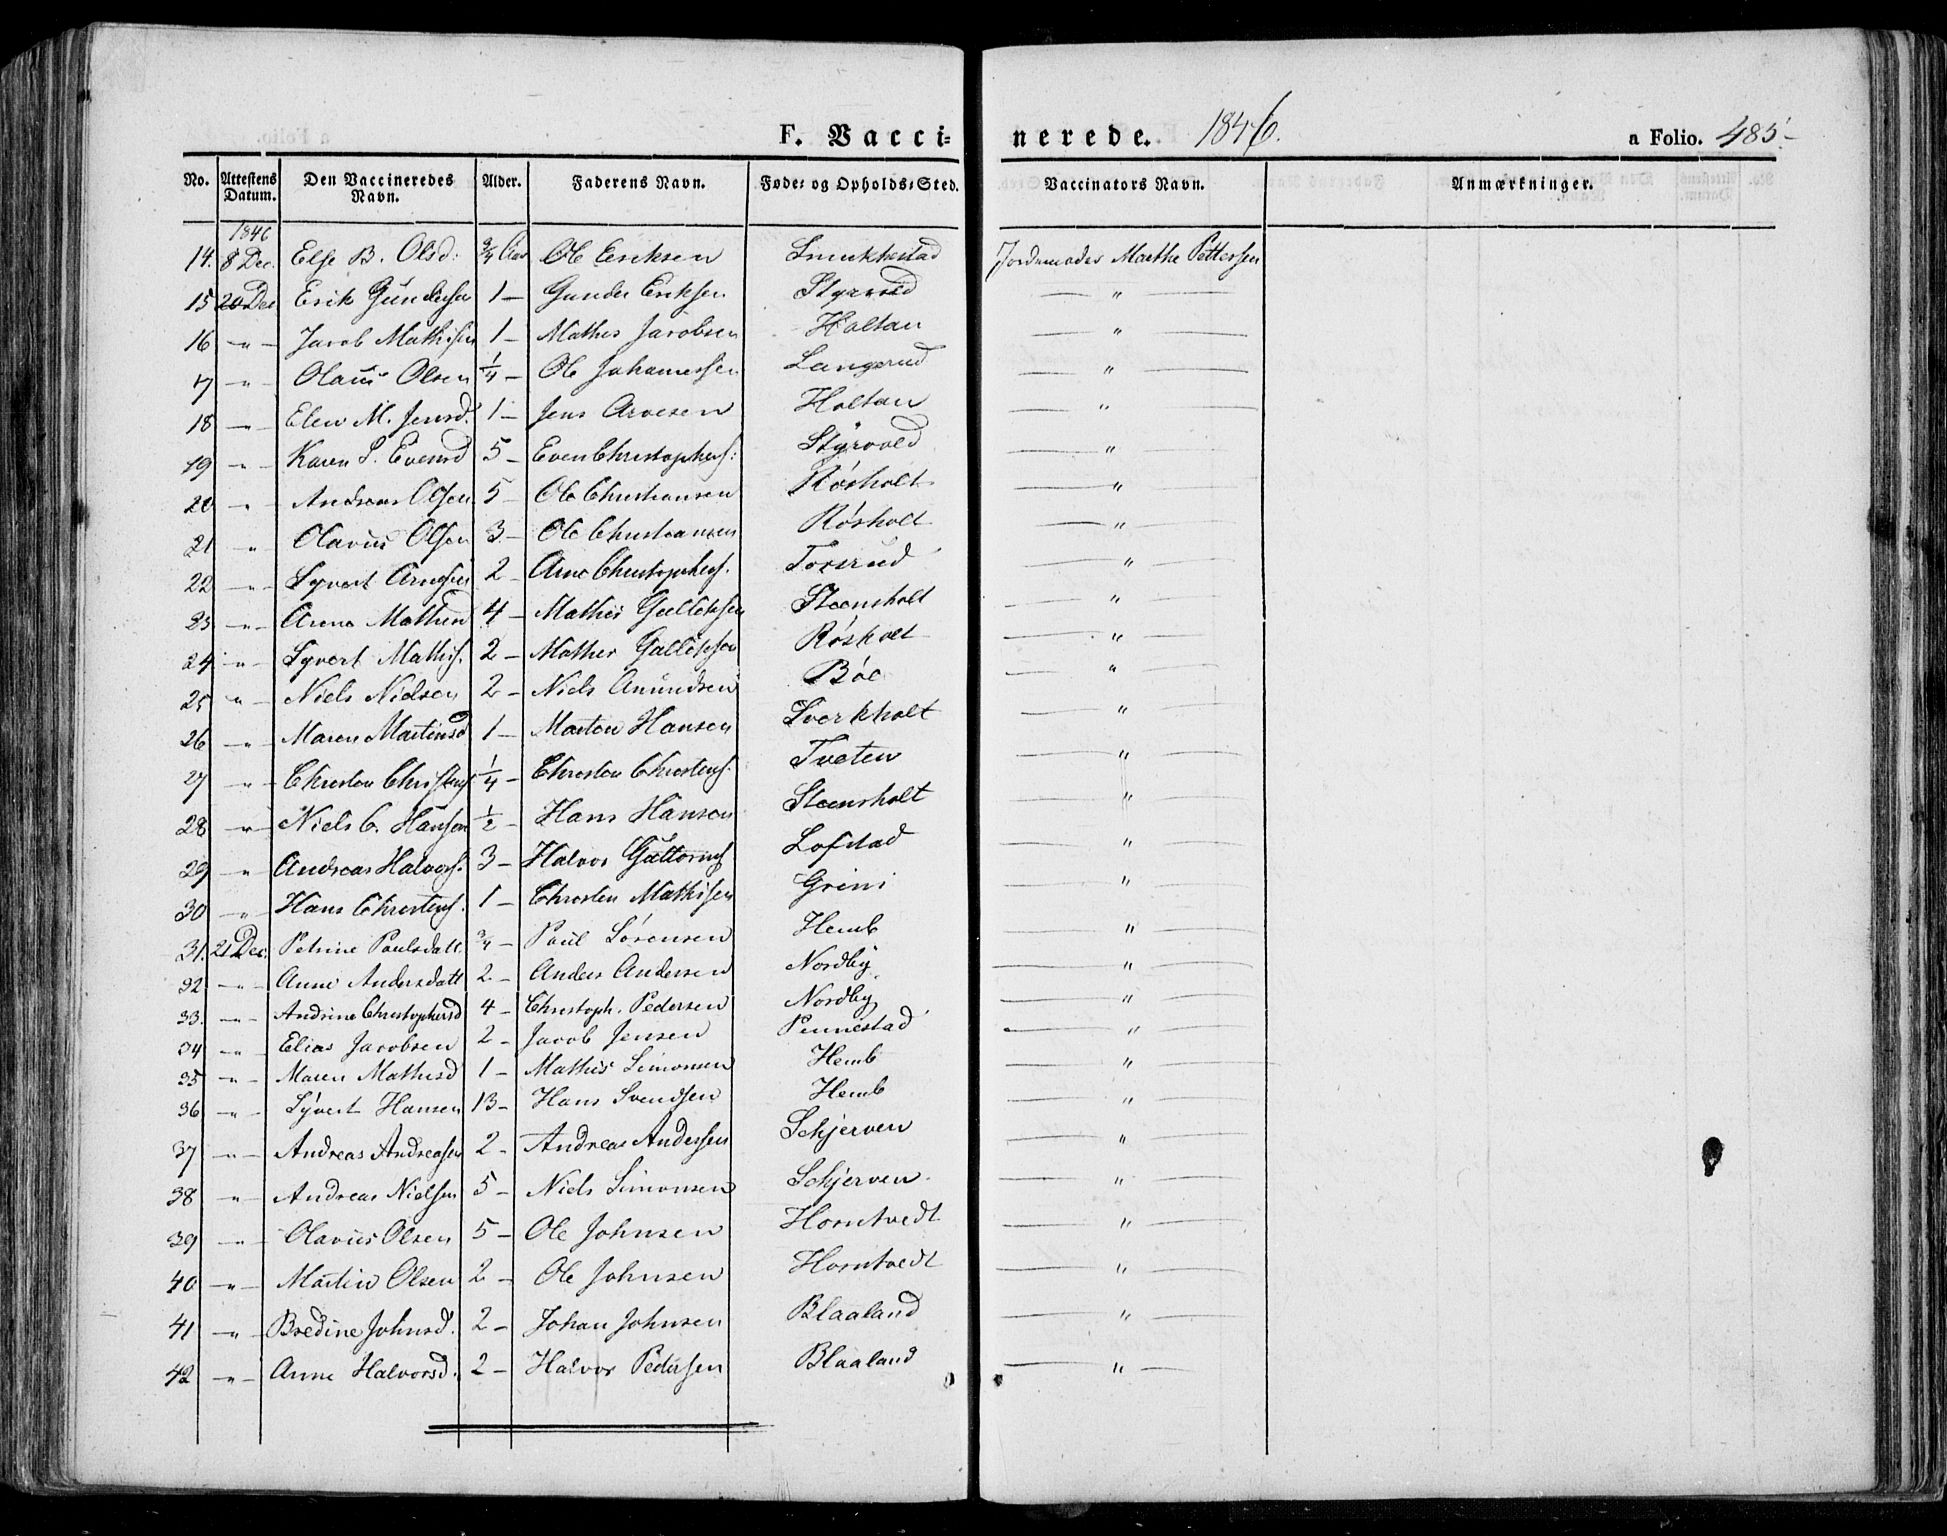 F. Vaccinerede. 1846. a Folio. 485-
No. Attestens Datum. Den Vaccineredes Navn. Alder. Faderens Navn. Føde- og Opholds-Sted. Vaccinators Navn. Anmærkninger.
1846
14. 8 Dec. Else B. Olsd: 3/4 Aar Ole Eriksen Smukkestad Jordemoder Marthe Pettersen
15 20 Dec Erik Gundersen 1 — Gunder Eriksen Styrvold — " —
16 — " — Jacob Mathisen 1 — Mathis Jacobsen Holtan — " —
17 — " — Olaus Olsen 1/4 — Ole Johannessen Langerud — " —
18 — " — Elen M. Jensd. 1 — Jens Arvesen Holtan — " —
19 — " — Karen S. Evensd 5 — Even Christophers: Styrvold — " —
20 — " — Andreas Olsen 5 — Ole Christiansen Røsholt — " —
21 — " — Olavus Olsen 3 — Ole Christiansen Røsholt — " —
22 — " — Syvert Arnesen 2 — Arne Christophers. Torsrud — " —
23 — " — Arne Mathisen 4 — Mathis Gulliksen Steensholt — " —
24 — " — Syvert Mathis. 2 — Mathis Gulliksen Røsholt — " —
25 — " — Niels Nielsen 2 — Niels Amundsen Bøe — " —
26 — " — Maren Martinsd 1 — Morten Hansen Sverkholt — " —
27 — " — Christen Christens 1/4 — Christen Christens. Tveten — " —
28 — " — Niels C. Hansen 1/2 — Hans Hansen Steensholt — " —
29 — " — Andreas Halvors. 3 — Halvor Guttorms Lofstad — " —
30 — " — Hans Christens. 1 — Christen Mathisen Grini — " —
31. 21 Dec. Petrine Paulsdatt 3/4 — Paul Sørensen Hemb — " —
32 — " — Anne Andersdatt 2 — Anders Andersen Nordby — " —
33. — " — Andrine Christophersd 4 — Christoph. Pedersen Nordby — " —
34 — " — Elias Jacobsen 2 — Jacob Jensen Pennestad — " —
35 — " — Maren Mathisd 1 — Mathis Simonsen Hemb — " —
36 — " — Syvert Hansen 13 — Hans Svendsen Hemb — " —
37 — " — Andreas Andreasen 2 — Andreas Anderssen Schjerven — " —
38 — " — Andreas Nielsen 5 — Niels Simonsen Schjerven. — " —
39 — " — Olavus Olsen 5 — Ole Johnsen Horntvedt — " —
40 — " — Martin Olsen 2 — Ole Johnsen Horntvedt — " —
41 — " — Bredine Johnsd. 2 — Johan Johnsen Blaaland — " —
42 — " — Anne Halvorsd. 2 — Halvor Pedersen Blaaland — " —